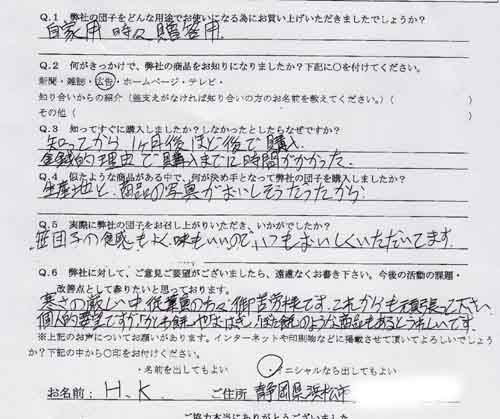 Q.1 弊社の団子をどんな用途でお使いになる為にお買い上げいただきましたでしょうか?
自家用 時々贈答用.
Q.2 何がきっかけで、弊社の商品をお知りになりましたか?下記に○を付けてください。
新聞・雑誌・広告・ホームページ・テレビ・
知り合いからの紹介(差支えがなければ知り合いの方のお名前を教えてください。)( )
その他( )
Q.3 知ってすぐに購入しましたか?しなかったとしたらなぜですか?
知ってから1ヶ月後ほど後で購入
金銭的理由で購入までに時間がかかった.
Q.4 似たような商品がある中で、何が決め手となって弊社の団子を購入しましたか?
生産地と、商品の写真がおいしそうだったから.
Q.5 実際に弊社の団子をお召し上がりいただき、いかがでしたか?
笹団子の食感もよく、味もいいので、いつもおいしくいただいてます.
Q.6 弊社に対して、ご意見ご要望がございましたら、遠慮なくお書き下さい。今後の活動の課題・
改善点として参りたいと思っております。
寒さの厳しい中従業員の方々御苦労様です。これからも頑張って下さい.
個人的要望ですが、かとも餅やおはぎ、ぼた餅のような商品もあるとうれしいです.
※上記のお声についてお願いがあります。インターネットや印刷物などに掲載させて頂いてよろしいでしょう
か?下記の中から○印をお付けください。
・名前を出してもよい ・イニシャルなら出してもよい
お名前: H.K. ご住所 静岡県浜松市
ご協力本当にありがとうございました